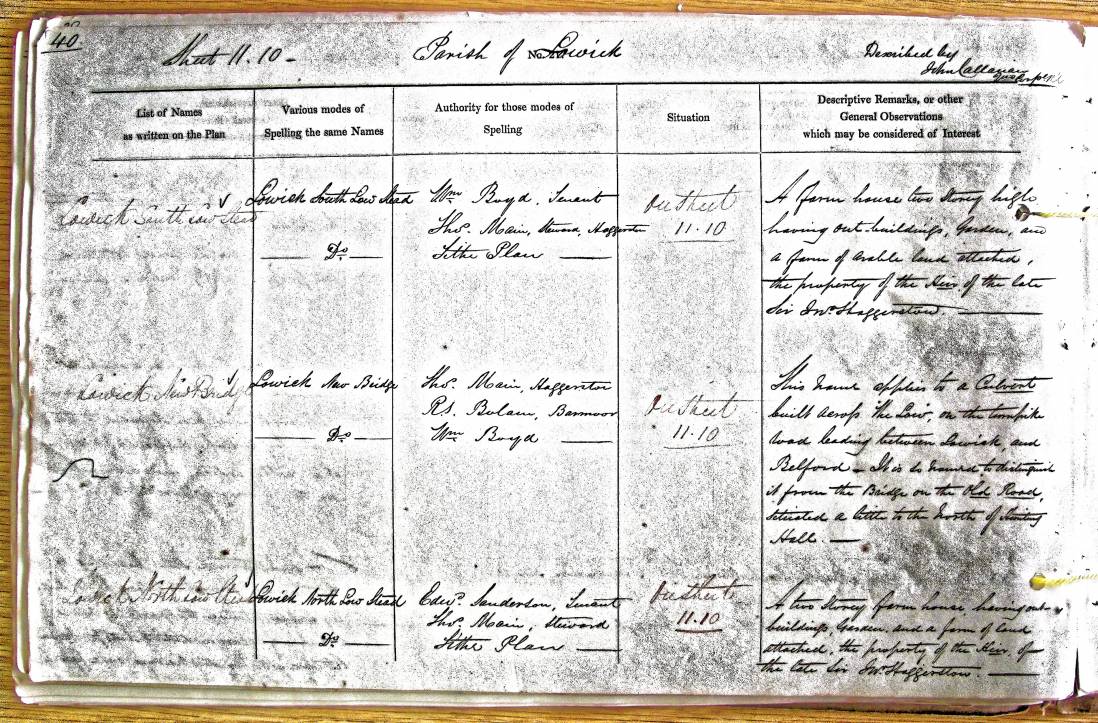 40
Sheet 11.10 -
Parish of Lowick
Described by
John Callanan
List of Names
as written on the Plan
Various modes of
Spelling the same Names
Authority for those modes of
Spelling
Situation
Descriptive Remarks, or other
General Observations
which may be considered of Interest
Lowick South Low Stead
Lowick South Low Stead
Do
Wm Boyd, Tenant
Thos. Main, Steward, Haggerston
Tithe Plan
On Sheet
11.10
A farm house two Storey high
having out-buildings, Garden, and
a farm of arable land attached,
the property of the Heir of the late
Sir Jno. Haggerston.
Lowick New Bridge
Lowick New Bridge
Do
Thos. Main, Haggerston
Rt. Bolam, Barmoor
Wm Boyd
On Sheet
11.10
This name applies to a Culvert
built across the Low, on the turnpike
road leading between Lowick, and
Belford - It is so named to distinguish
it from the Bridge on the Old Road,
situated a little to the North of Hunting
Hall. -
Lowick North Low Stead
Lowick North Low Stead
Do
Edwd. Sanderson, Tenant
Thos. Main, Steward
Tithe Plan
On Sheet
11.10
A two Storey farm house having out-
buildings, Garden, and a farm of land
attached, the property of the Heir, of
the late Sir Jno. Haggerston.